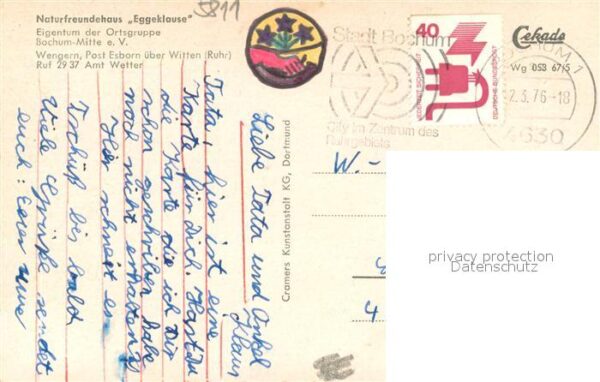 Naturfreundehaus „Eggeklause"
Eigentum der Ortsgruppe
Bochum-Mitte e. V.
Wengern, Post Esborn über Witten (Ruhr)
Ruf 29 37 Amt Wetter
5811
Stadt Bochum
City im Zentrum des
Ruhrgebiets
40
DEUTSCHE BUNDESPOST
Cekade
Wg 053 67/5
2.3.76-18
4630
Cramers Kunstanstalt KG, Dortmund
Liebe Tata und Onkel
Klaus
Tata, hier ist eine
Karte für dich. Hast du
die Karte die ich Dir
schon geschrieben habe
noch nicht erhalten?
Hier schneit es.
Tschüß bis bald
Viele Grüße sendet
euch: Eurer Uwe
W.-
4
privacy protection
Datenschutz